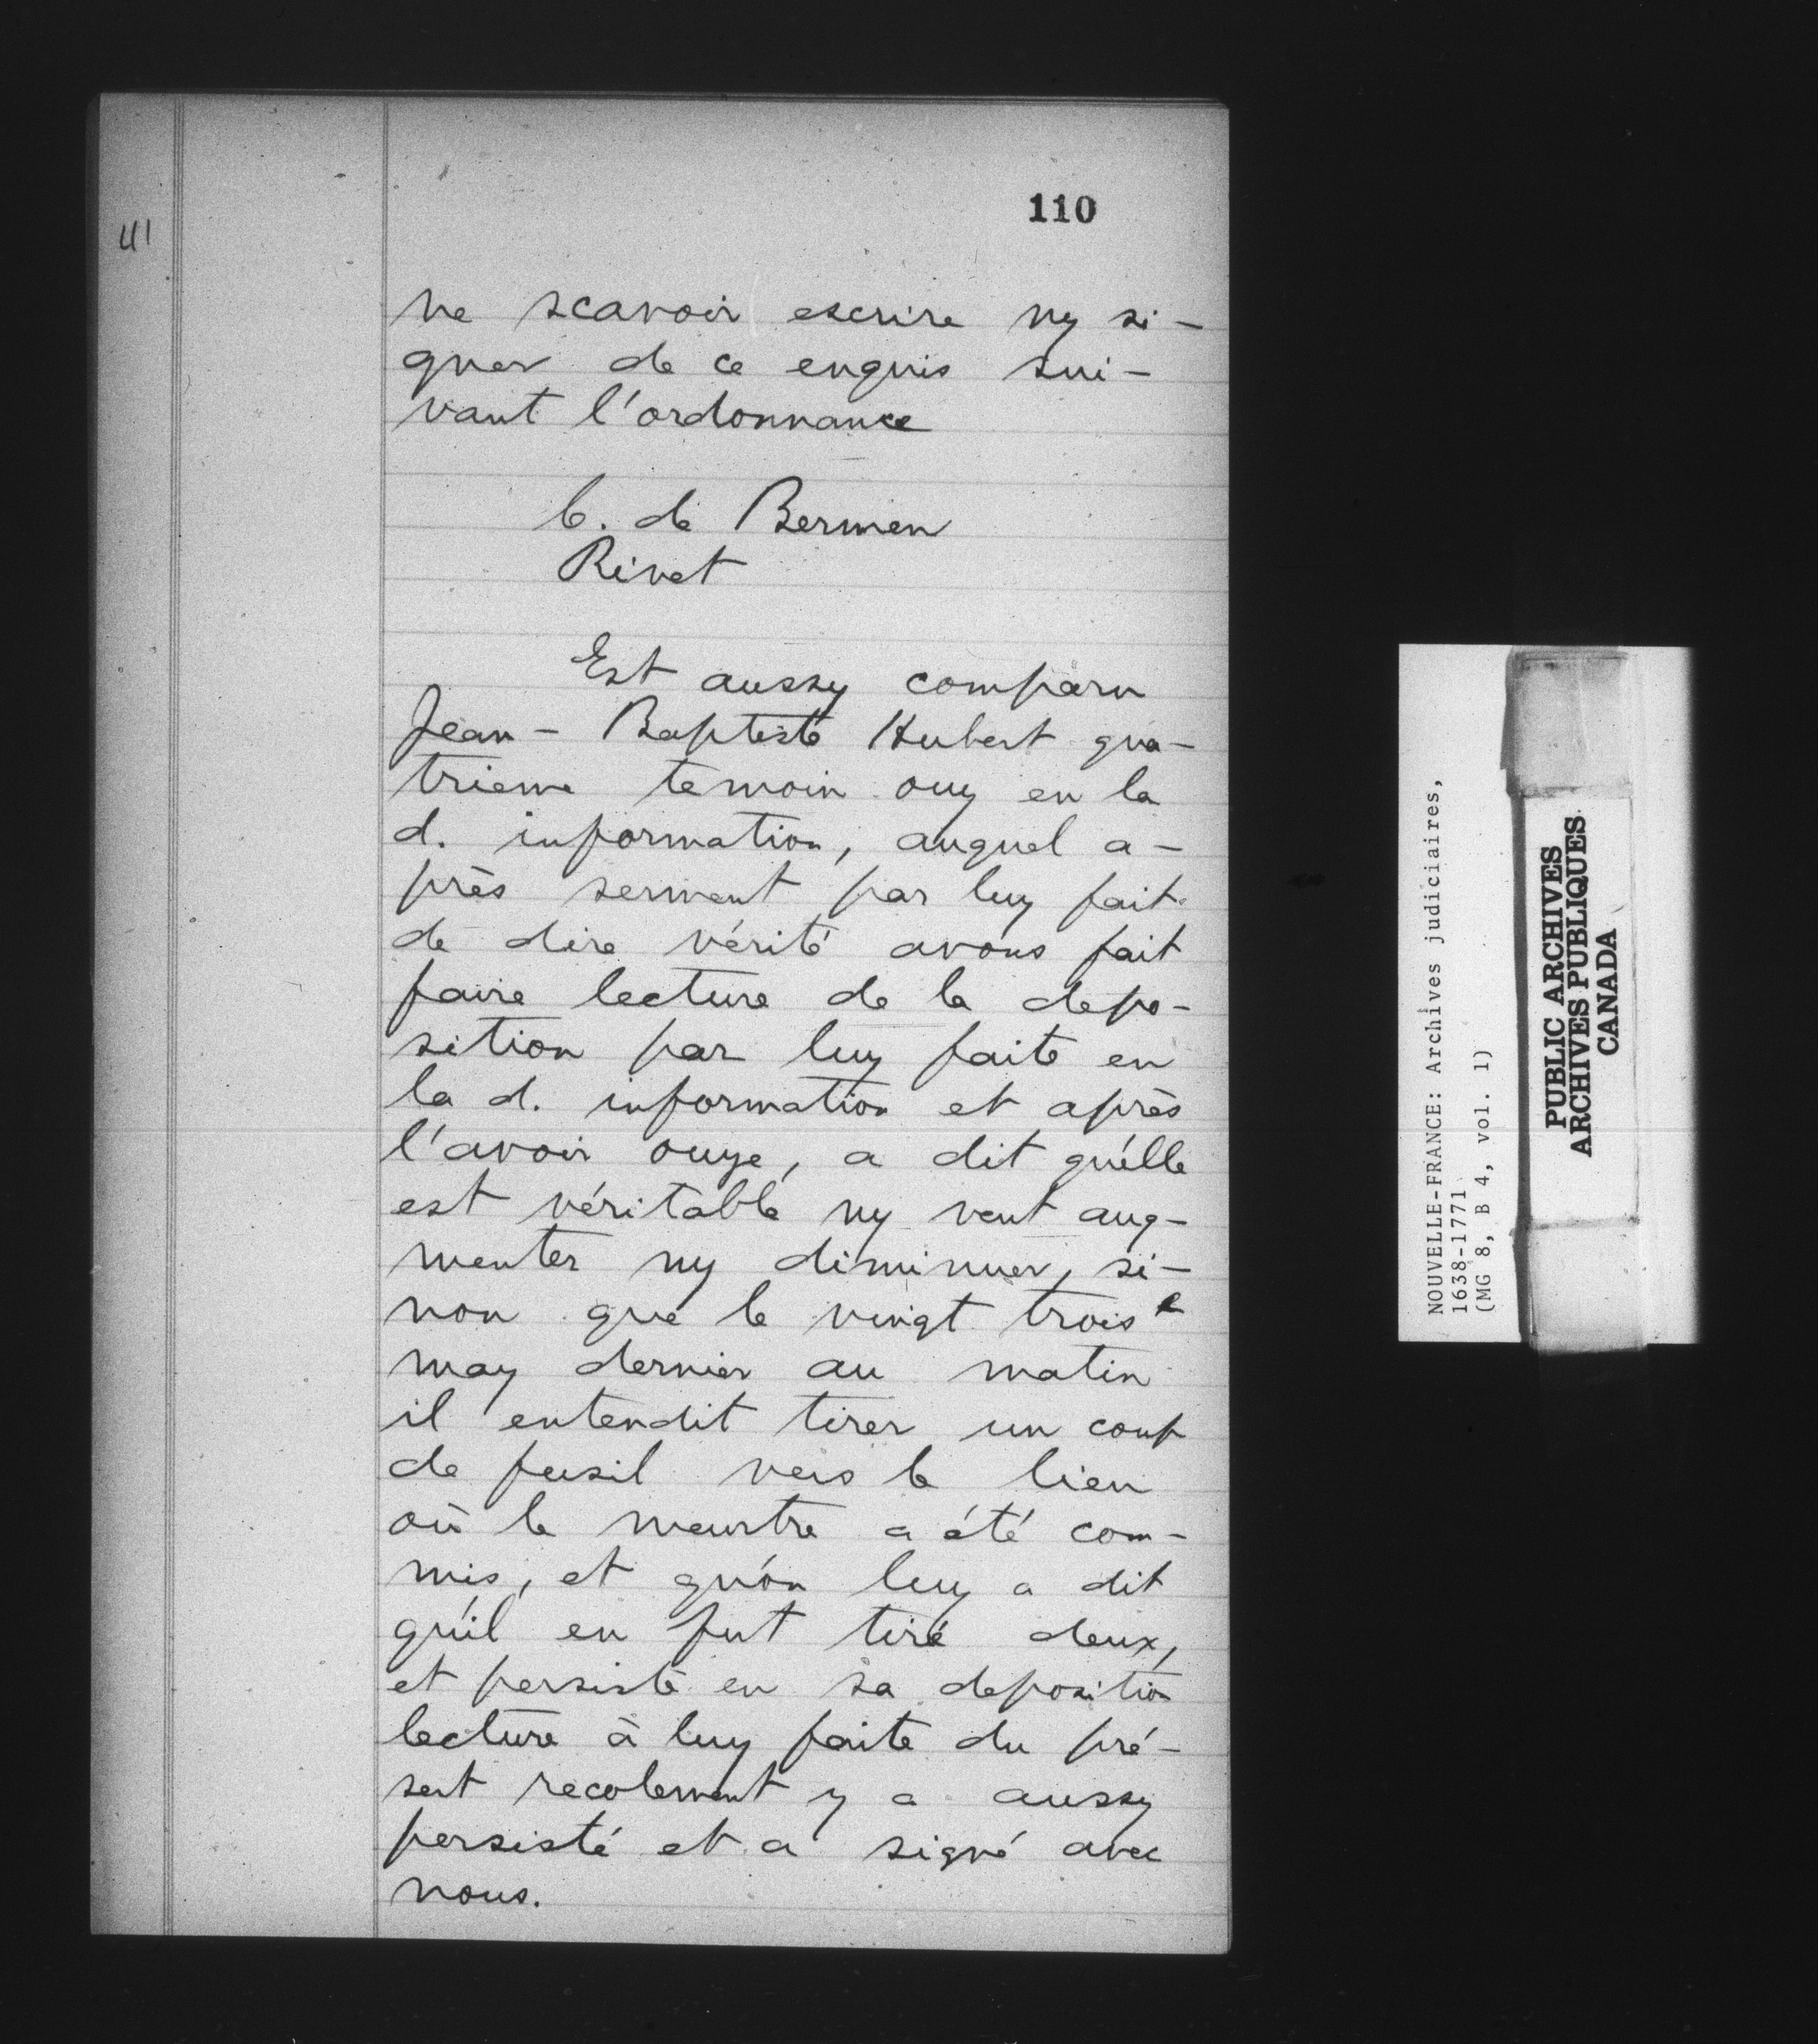 110
41
ne scavoir escrire ny si-
gner de ce enquis sui-
vant l'ordonnance
C. de Bermen
Rivet
Est aussy comparu
Jean-Baptiste Hubert qua-
trieme temoin ouy en la
d. information, auquel a-
près serment par luy fait
de dire vérité avons fait
faire lecture de la depo-
sition par luy faite en
la d. information et après
l'avoir ouye, a dit qu'elle
est véritable ny veut aug-
menter ny diminuer, si-
non que le vingt trois e
may dernier au matin
il entendit tirer un coup
de fusil vers le lieu
où le meurtre a été com-
mis, et qu'on luy a dit
qu'il en fut tiré deux,
et persiste en sa deposition
lecture à luy faite du pré-
sent recolement y a aussy
persisté et a signé avec
nous.
NOUVELLE-FRANCE: Archives judiciaires,
1638-1771
(MG 8, B 4, vol. 1)
PUBLIC ARCHIVES
ARCHIVES PUBLIQUES
CANADA